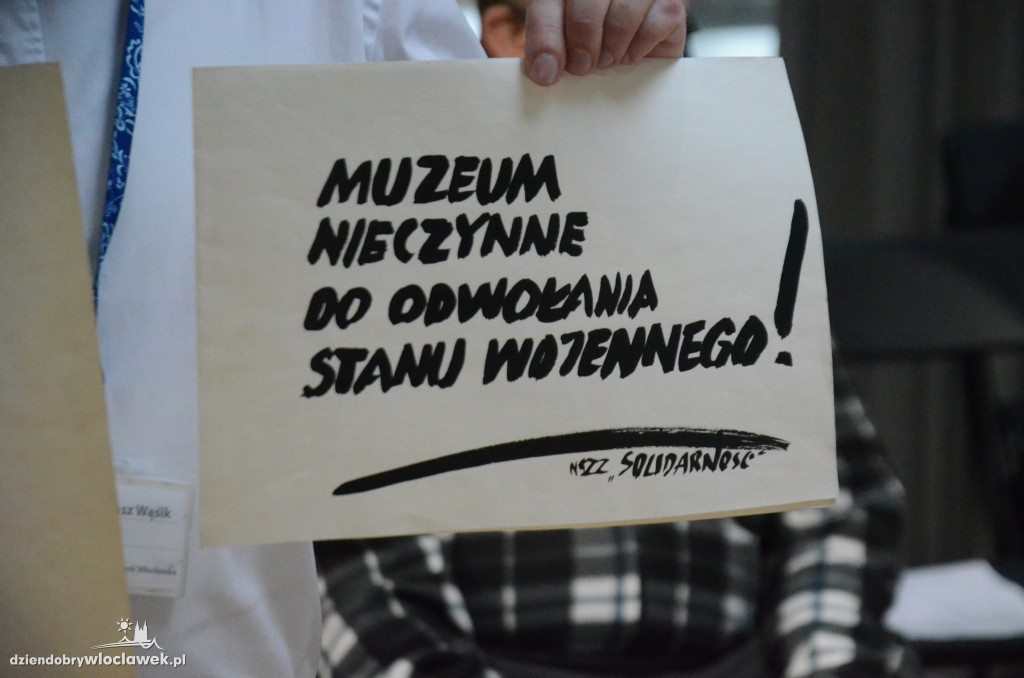 MUZEUM
NIECZYNNE
DO ODWOŁANIA
STANU WOJENNEGO!
NSZZ „SOLIDARNOŚĆ"
sz Wąsik
Włocławku
dziendobrywloclawek.pl